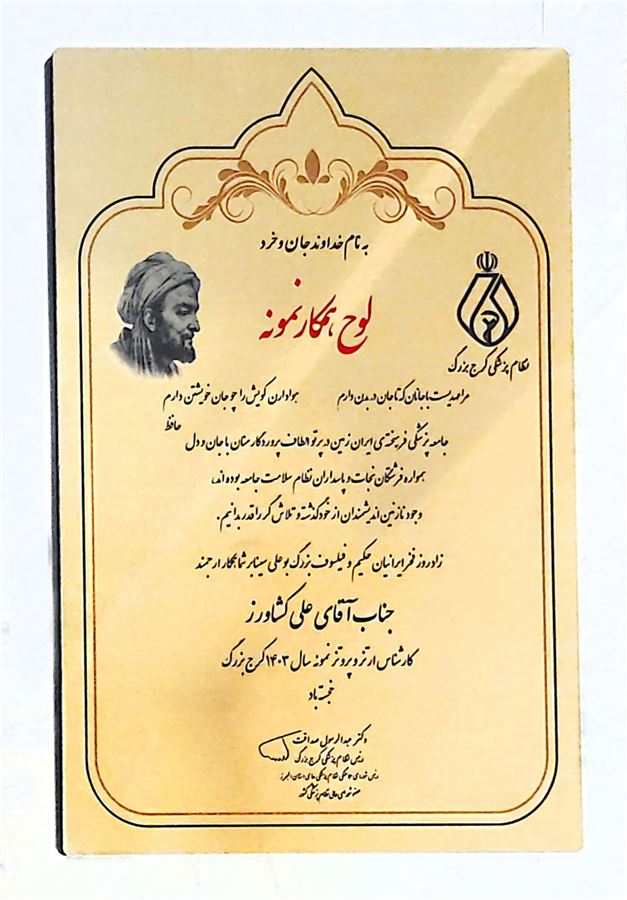 به نام خداوند جان و خرد
لوح همکار نمونه
نظام پزشکی کرج بزرگ
مرا عهدیست با جانان که تا جان در بدن دارم هوادارن کویش را چو جان خویشتن دارم
حافظ
جامعه پزشکی فرهیخته‌ی ایران زمین در پرتو الطاف پروردگار منان با جان و دل
همواره فرشتگان نجات و پاسداران نظام سلامت جامعه بوده اند،
وجود نازنین اندیشمندان از خود گذشته و تلاش گر را قدر بدانیم.
زادروز فخر ایرانیان حکیم و فیلسوف بزرگ بوعلی سینا بر شما همکار ارجمند
جناب آقای علی کشاورز
کارشناس ارتز و پروتز نمونه سال ۱۴۰۳ کرج بزرگ
خجسته باد
دکتر عبدالرسول صداقت
رئیس نظام پزشکی کرج بزرگ
رئیس شورای هماهنگی نظام پزشکی های استان البرز
عضو شورای عالی نظام پزشکی کشور